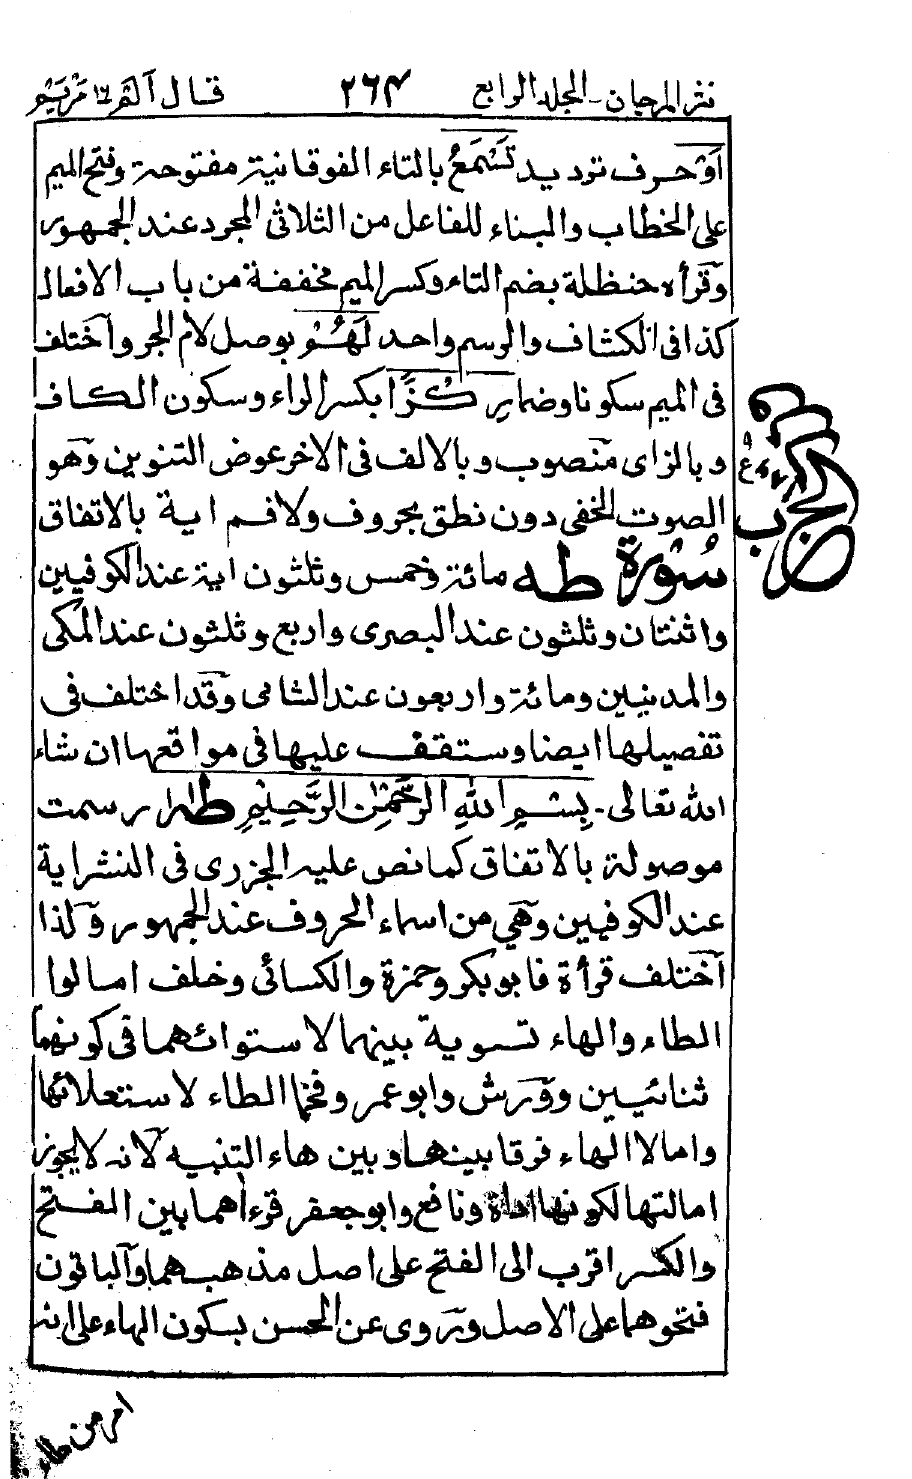 نثر المرجان - المجلد الرابع ٢٦٤ قال ألم ١٦ مريم
أو حرف ترديد تسمع بالتاء الفوقانية مفتوحة وفتح الميم
على الخطاب والبناء للفاعل من الثلاثى المجرد عند الجمهور
وقرأه حنظلة بضم التاء وكسر الميم مخففة من باب الافعال
كذا فى الكشاف والرسم واحد لهم بوصل لام الجر واختلف
فى الميم سكونا وضما ركزا بكسر الراء وسكون الكاف
وبالزاى منصوب وبالالف فى الاخر عوض التنوين وهو
الصوت الخفى دون نطق بحروف ولا فم اية بالاتفاق
سورة طه مائة وخمس وثلثون اية عند الكوفيين
واثنتان وثلثون عند البصرى واربع وثلثون عند المكى
والمدنيين ومائة واربعون عند الشامى وقد اختلف فى
تفصيلها ايضا وستقف عليها فى مواقعها ان شاء
الله تعالى - بسم الله الرحمن الرحيم طه رسمت
موصولة بالاتفاق كما نص عليه الجزرى فى النشر اية
عند الكوفيين وهى من اسماء الحروف عند الجمهور وكذا
اختلف قرأة فابوبكر وحمزة والكسائى وخلف امالوا
الطاء والهاء تسوية بينهما لاستوائهما فى كونهما
ثنائيين وورش وابو عمر وفخما الطاء لاستعلائها
وامالا الهاء فرقا بينها وبين هاء التنبيه لانه لا يجوز
امالتها لكونها اداة ونافع وابوجعفر قرءاهما بين الفتح
والكسر اقرب الى الفتح على اصل مذهبهما والباقون
فتحوهما على الاصل وروى عن الحسن بسكون الهاء على انه
امر من طاء